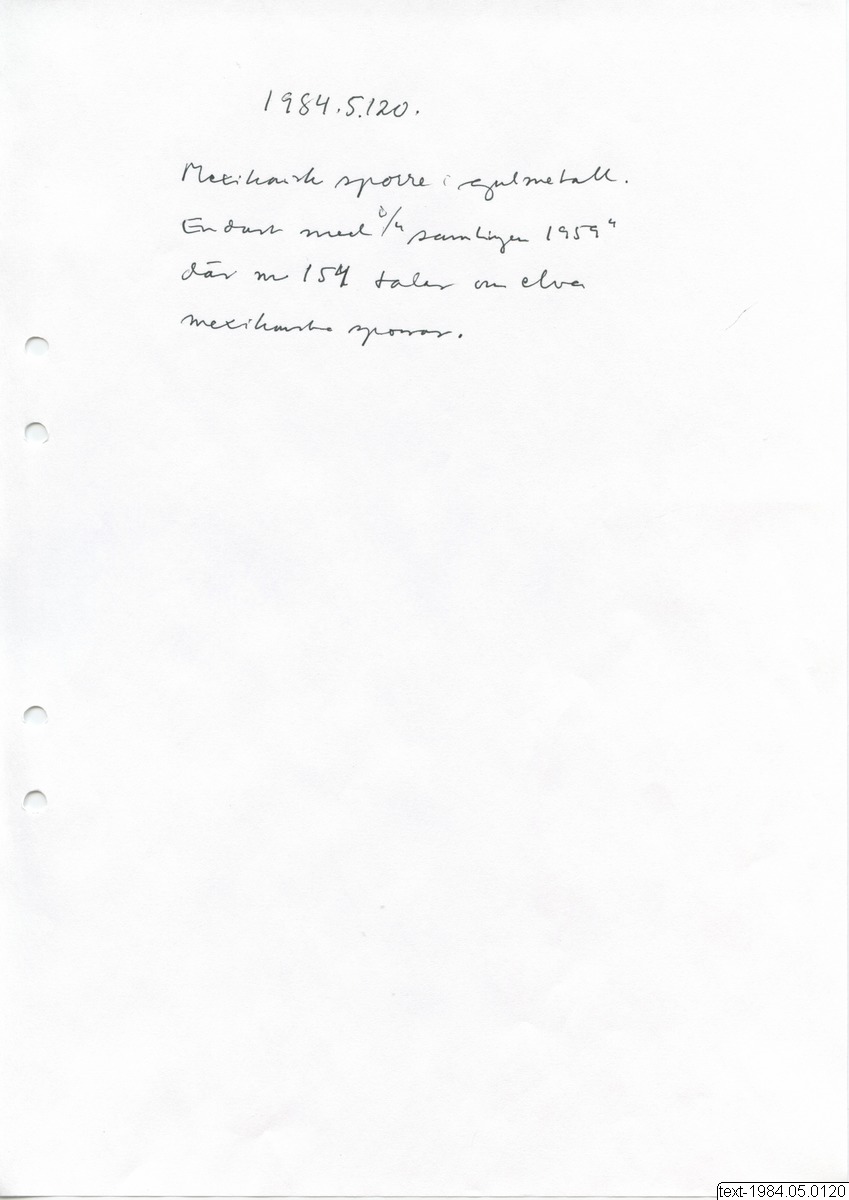 1984.5.120.
Mexikansk sporre i gulmetall.
Endast med i/" samlingen 1959"
där nr 154 talar om elva
mexikanska sporrar.
text-1984.05.0120